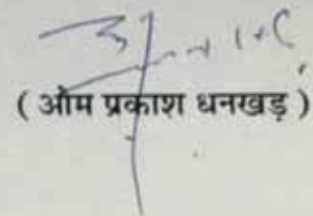 ( ओम प्रकाश धनखड़ )